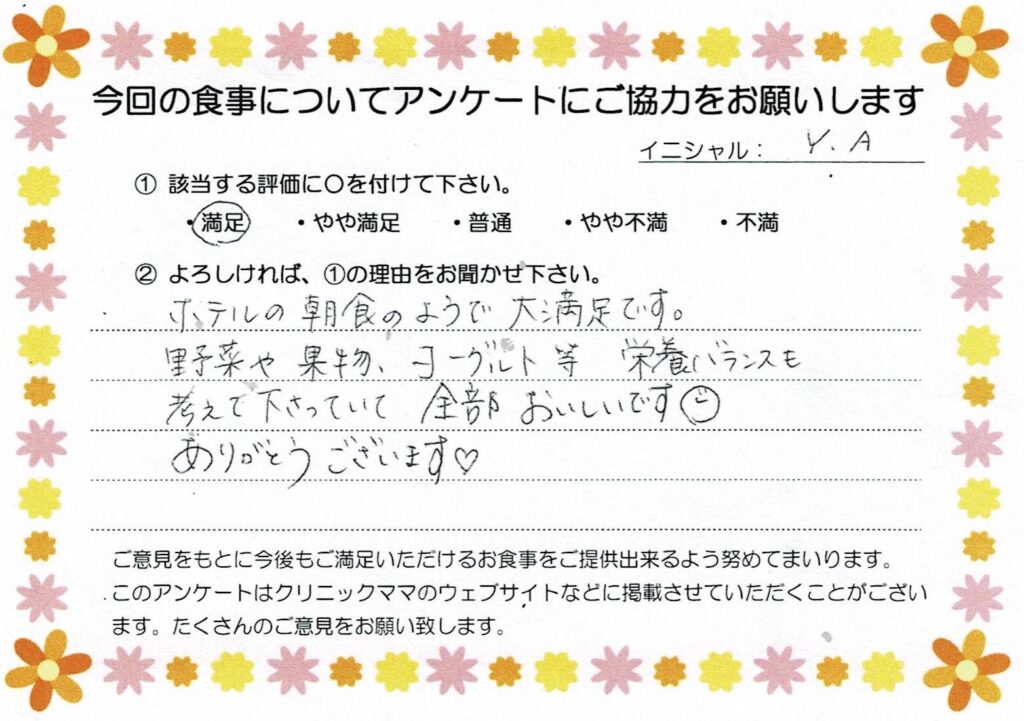 今回の食事についてアンケートにご協力をお願いします
イニシャル： Y.A
① 該当する評価に〇を付けて下さい。
・満足 ・やや満足 ・普通 ・やや不満 ・不満
② よろしければ、①の理由をお聞かせ下さい。
ホテルの朝食のようで大満足です。
野菜や果物、ヨーグルト等 栄養バランスも
考えて下さっていて 全部おいしいです☺
ありがとうございます♡
ご意見をもとに今後もご満足いただけるお食事をご提供出来るよう努めてまいります。
このアンケートはクリニックママのウェブサイトなどに掲載させていただくことがござい
ます。たくさんのご意見をお願い致します。